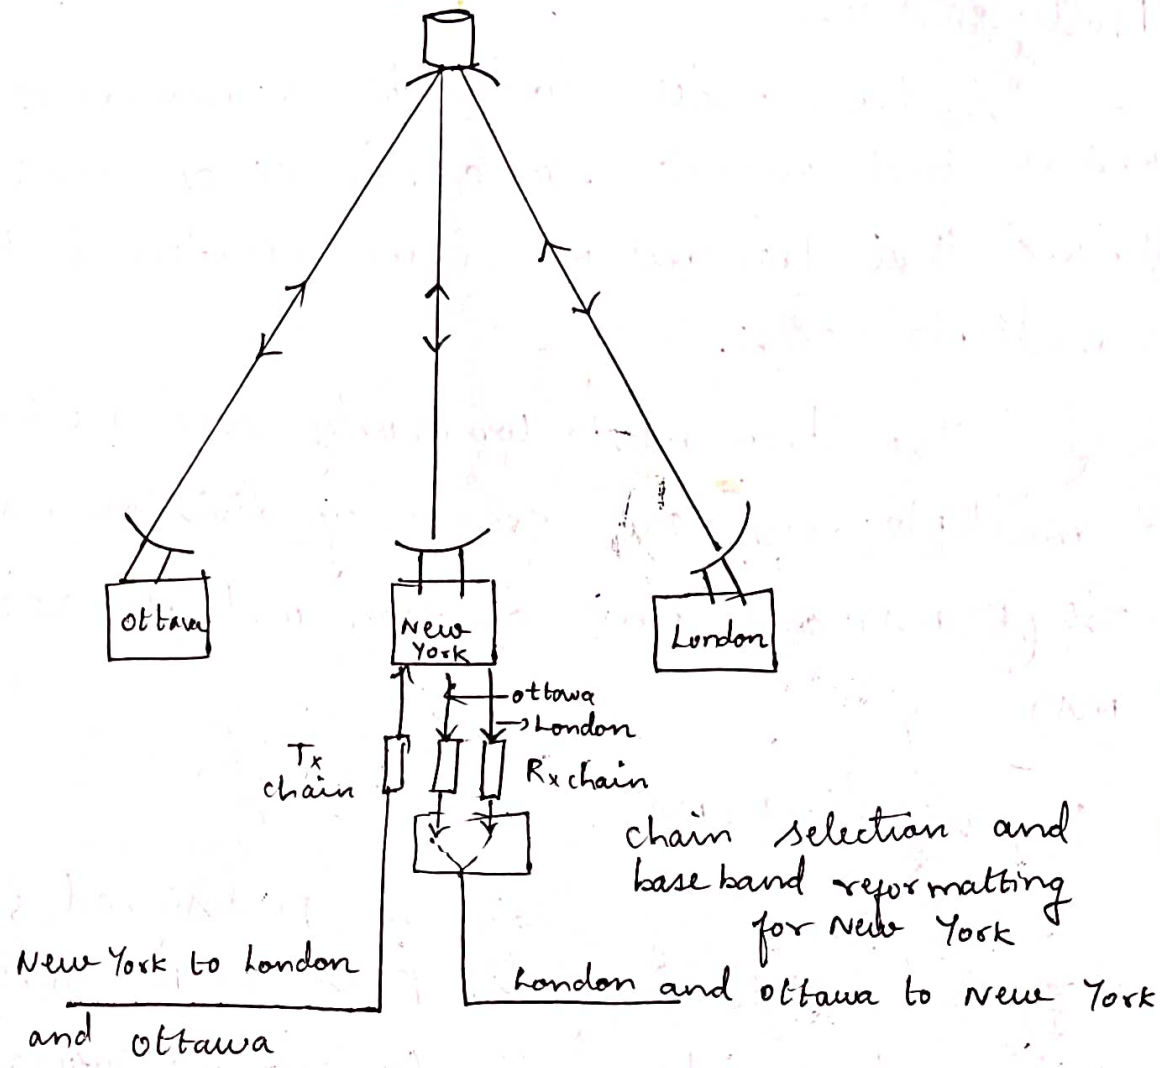 Ottawa
New
York
London
ottawa
London
Tx
chain
Rx chain
chain selection and
base band reformatting
for New York
New York to London
and ottawa
London and ottawa to New York